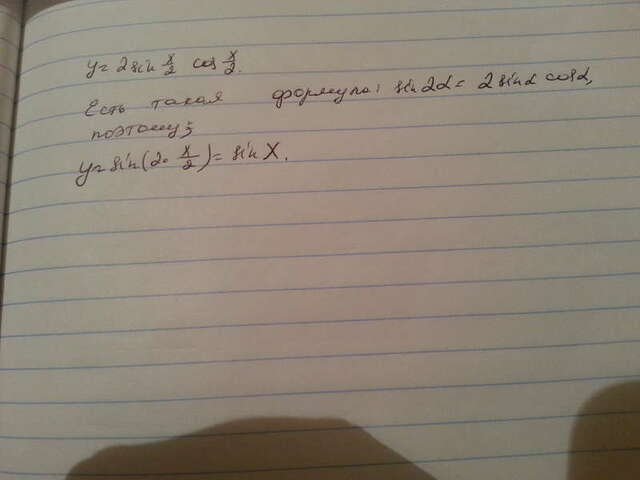 y = 2 sin x/2 cos x/2.
Есть такая формула: sin2α = 2 sinα cosα,
поэтому:
y = sin(2 · x/2) = sin x.